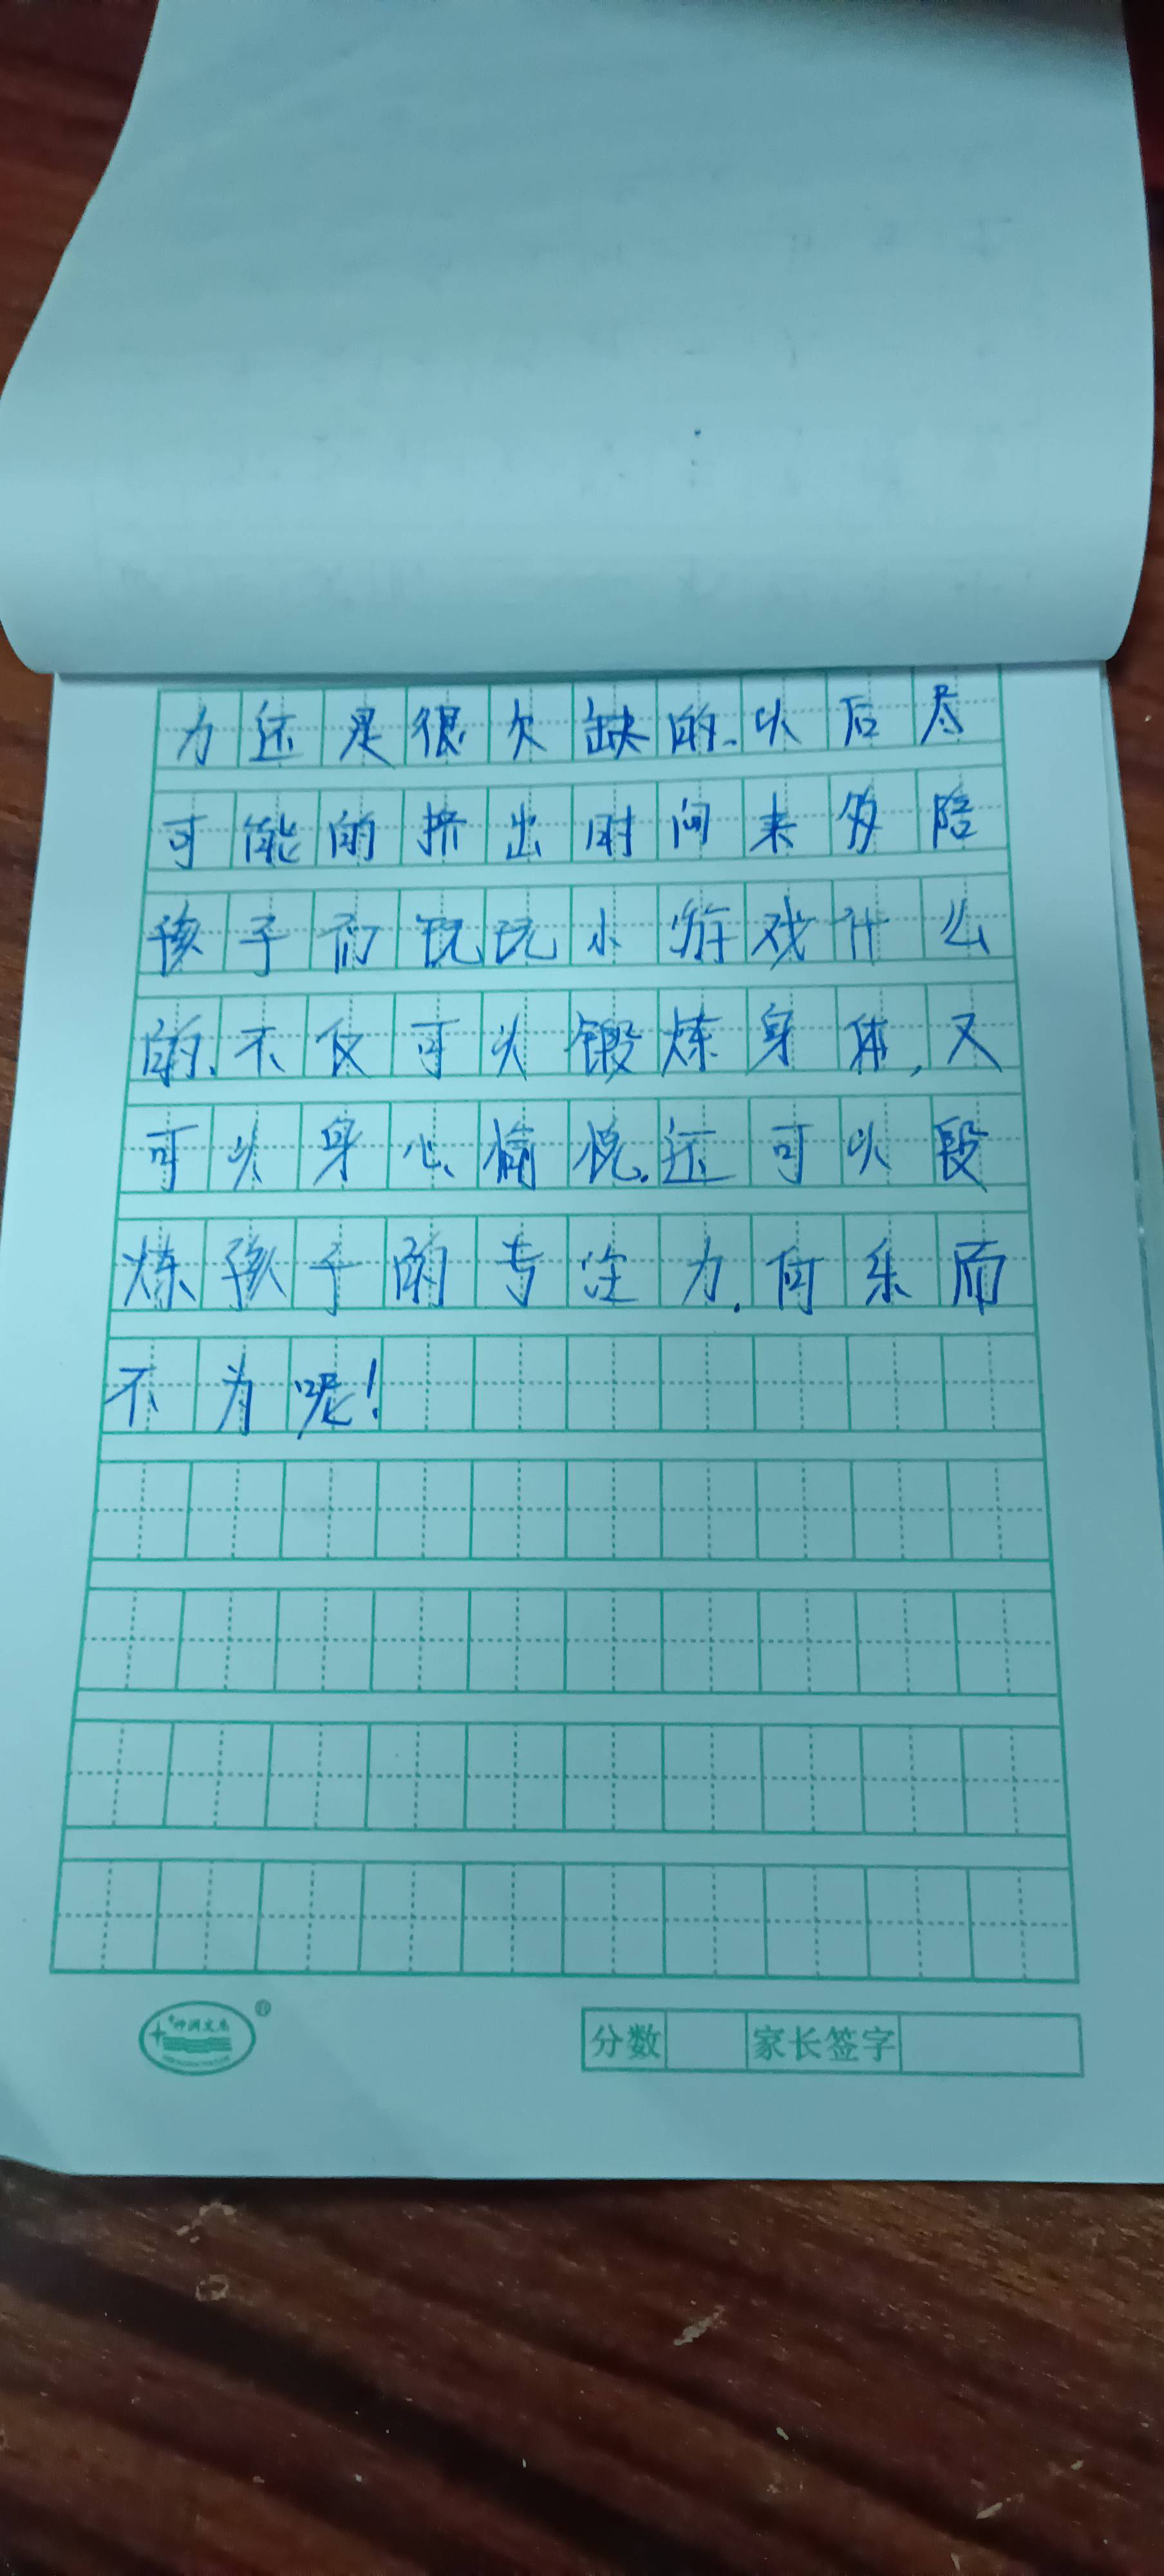 力还是很欠缺的.以后尽
可能的挤出时间来多陪
孩子们玩玩小游戏什么
的.不仅可以锻炼身体,又
可以身心愉悦.还可以段
炼孩子的专注力.何乐而
不为呢!
神洲文杰
分数 家长签字